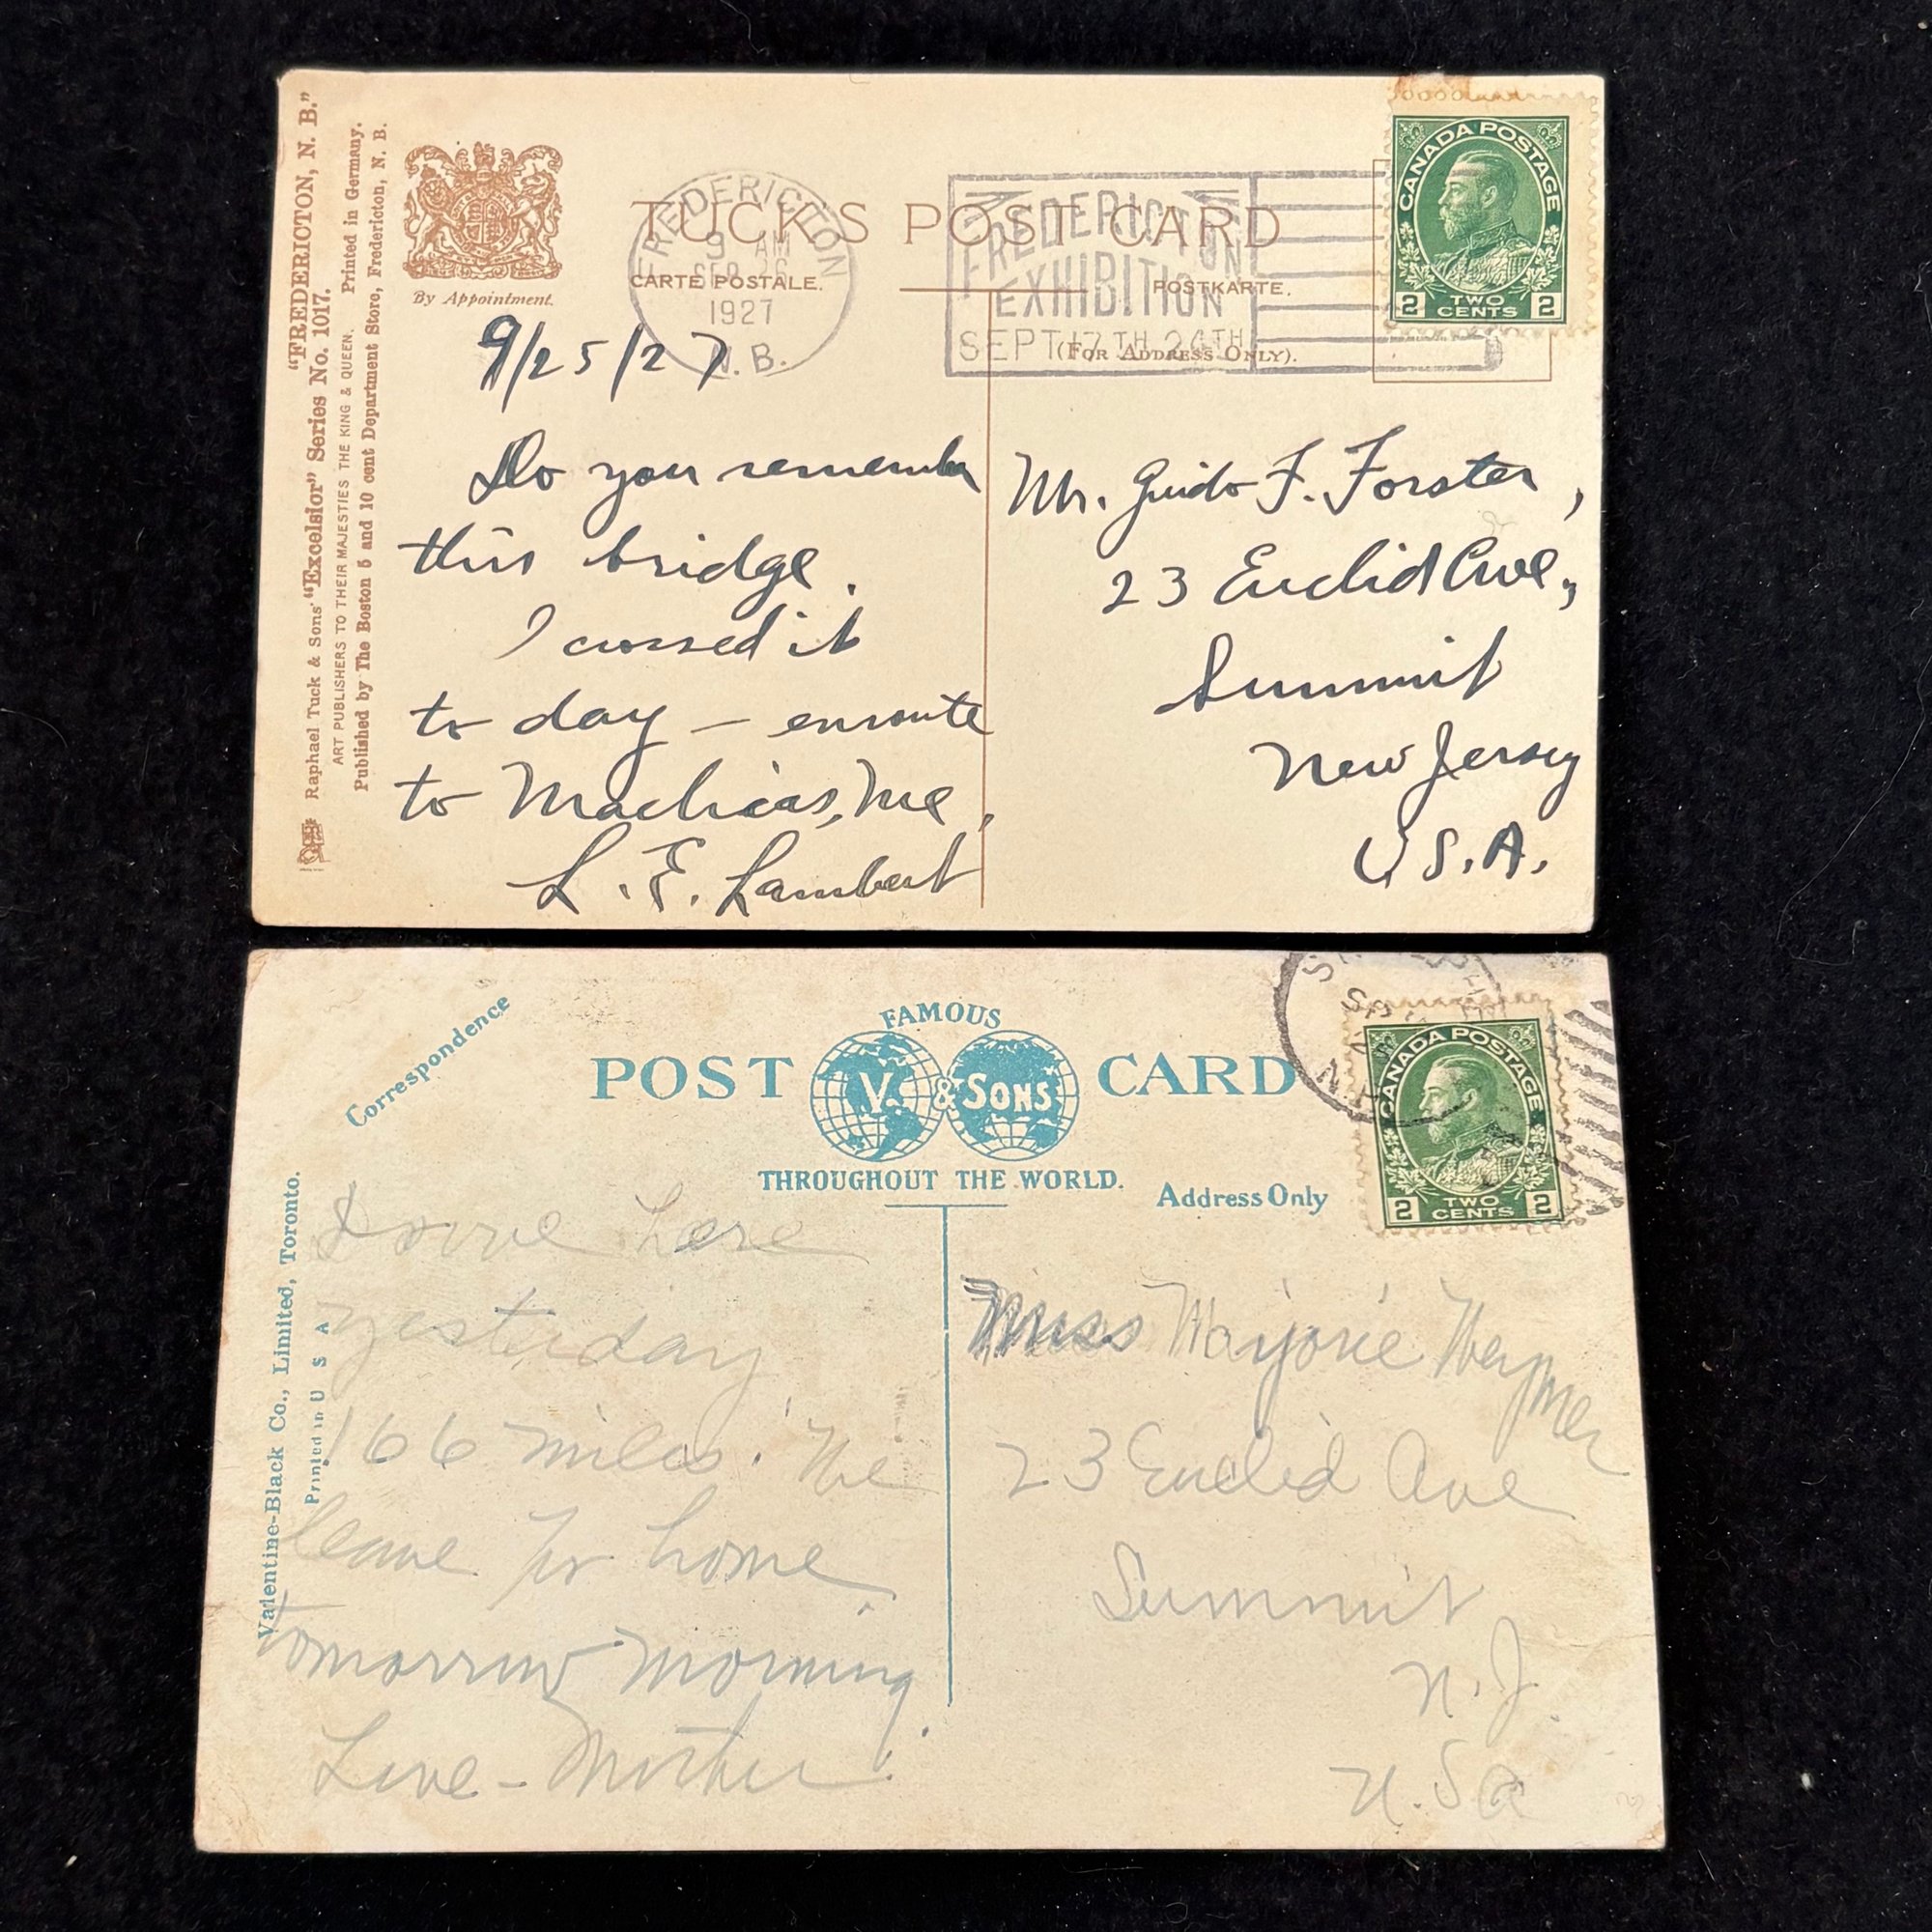 "FREDERICTON, N. B."
Raphael Tuck & Sons' "Excelsior" Series No. 1017.
ART PUBLISHERS TO THEIR MAJESTIES THE KING & QUEEN. Printed in Germany.
Published by The Boston 5 and 10 cent Department Store, Fredericton, N. B.
By Appointment.
TUCK'S POST CARD
CARTE POSTALE. POSTKARTE.
(FOR ADDRESS ONLY).
FREDERICTON
9 AM
SEP 26
1927
N.B.
FREDERICTON
EXHIBITION
SEPT 17TH 24TH
CANADA POSTAGE
2 TWO CENTS 2
9/25/27
Do you remember
this bridge.
I crossed it
to day – enroute
to Machias, Me,
L. E. Lambert
Mr. Guido F. Forster,
23 Euclid Ave,
Summit
New Jersey
U.S.A.
Correspondence
FAMOUS
POST V. & SONS CARD
THROUGHOUT THE WORLD.
Address Only
Valentine-Black Co., Limited, Toronto.
Printed in U S A
CANADA POSTAGE
2 TWO CENTS 2
Drove here
yesterday
166 miles. We
leave for home
tomorrow morning.
Love - Mother.
Miss Marjorie
23 Euclid Ave
Summit
N.J.
U.S.A